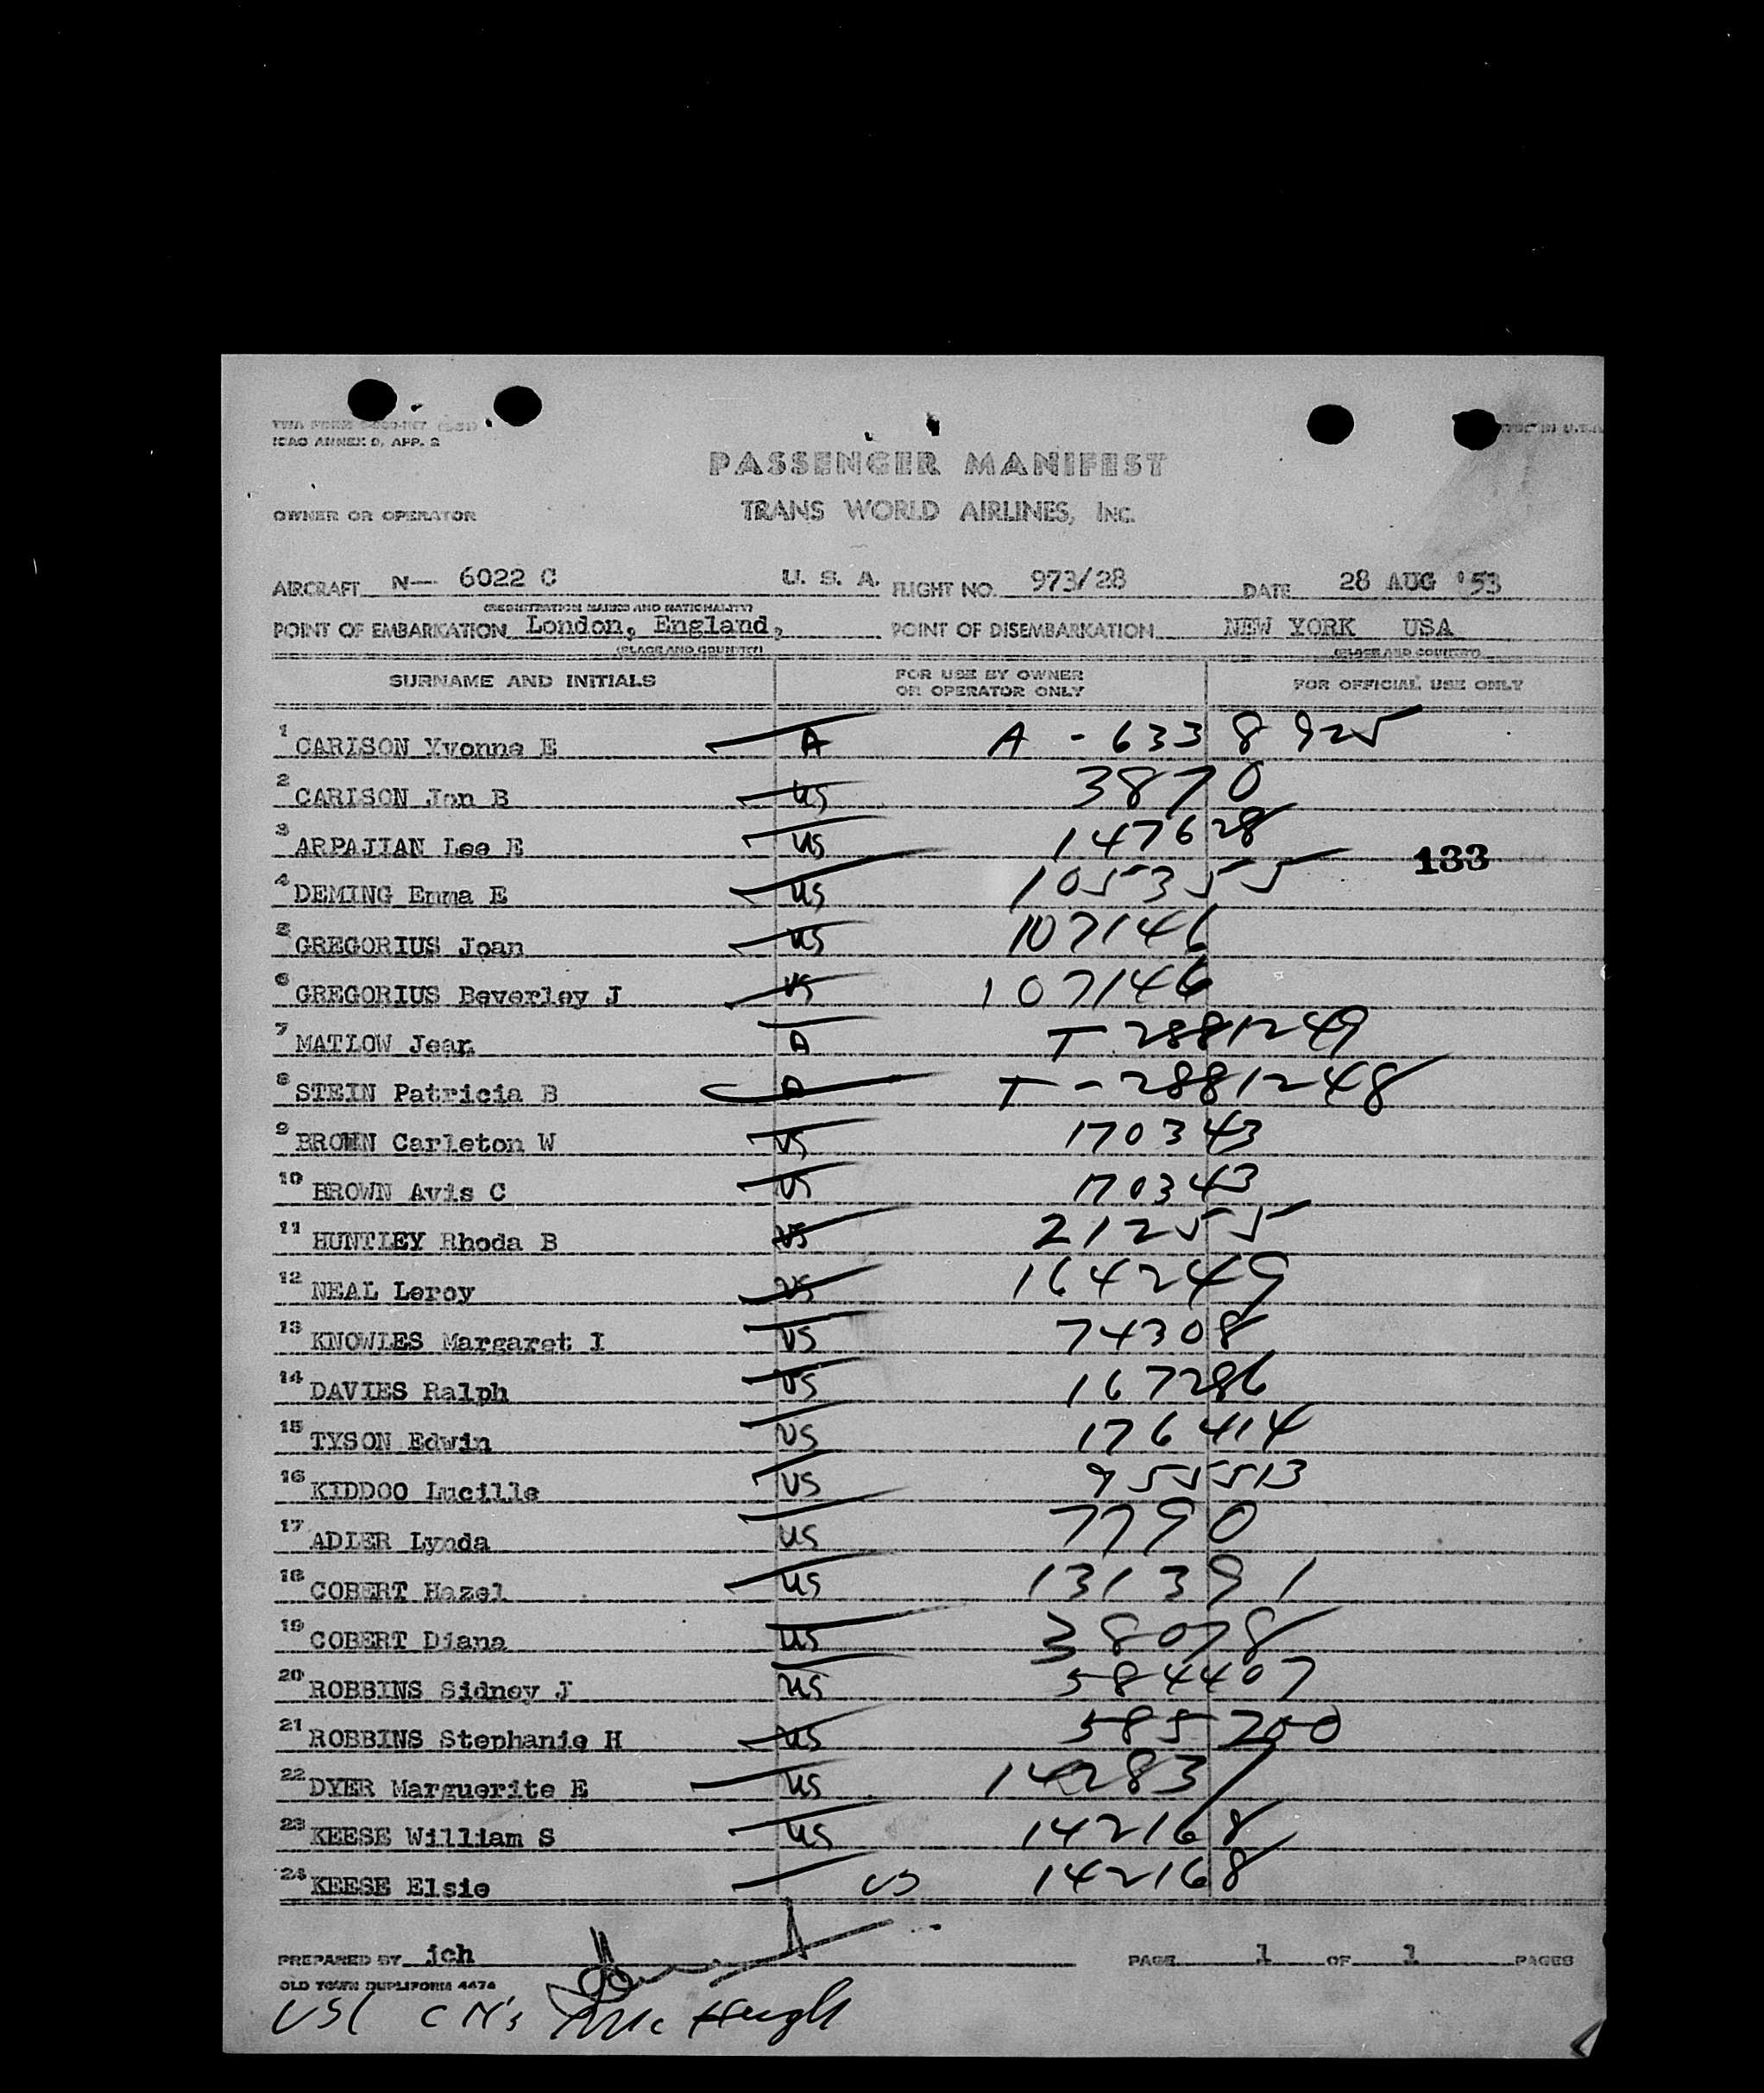 ICAO ANNEX 9, APP. 2
PASSENGER MANIFEST
OWNER OR OPERATOR TRANS WORLD AIRLINES, INC.
AIRCRAFT N— 6022 C U. S. A. FLIGHT NO. 973/28 DATE 28 AUG '53
(REGISTRATION MARKS AND NATIONALITY)
POINT OF EMBARKATION London, England, POINT OF DISEMBARKATION NEW YORK USA
(PLACE AND COUNTRY) (PLACE AND COUNTRY)
SURNAME AND INITIALS FOR USE BY OWNER OR OPERATOR ONLY FOR OFFICIAL USE ONLY
1 CARLSON Yvonne E A A - 6338925
2 CARLSON Jon B US 3870
3 ARPAJIAN Lee E US 147628
133
4 DEMING Emma E US 1055355
5 GREGORIUS Joan US 107146
6 GREGORIUS Beverley J US 107146
7 MATLOW Jean A T 2881249
8 STEIN Patricia B A T - 2881248
9 BROWN Carleton W US 170343
10 BROWN Avis C US 170343
11 HUNTLEY Rhoda B US 21255
12 NEAL Leroy US 164249
13 KNOWLES Margaret I US 74308
14 DAVIES Ralph US 167286
15 TYSON Edwin US 176414
16 KIDDOO Lucille US 955513
17 ADLER Lynda US 7790
18 COBERT Hazel US 131391
19 COBERT Diana US 38078
20 ROBBINS Sidney J US 584407
21 ROBBINS Stephanie H US 585200
22 DYER Marguerite E US 142837
23 KEESE William S US 142168
24 KEESE Elsie US 142168
PREPARED BY jch PAGE 1 OF 1 PAGES
OLD TOWN DUPLIFORM 4474
McHugh